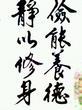 靜以修身
儉能養德